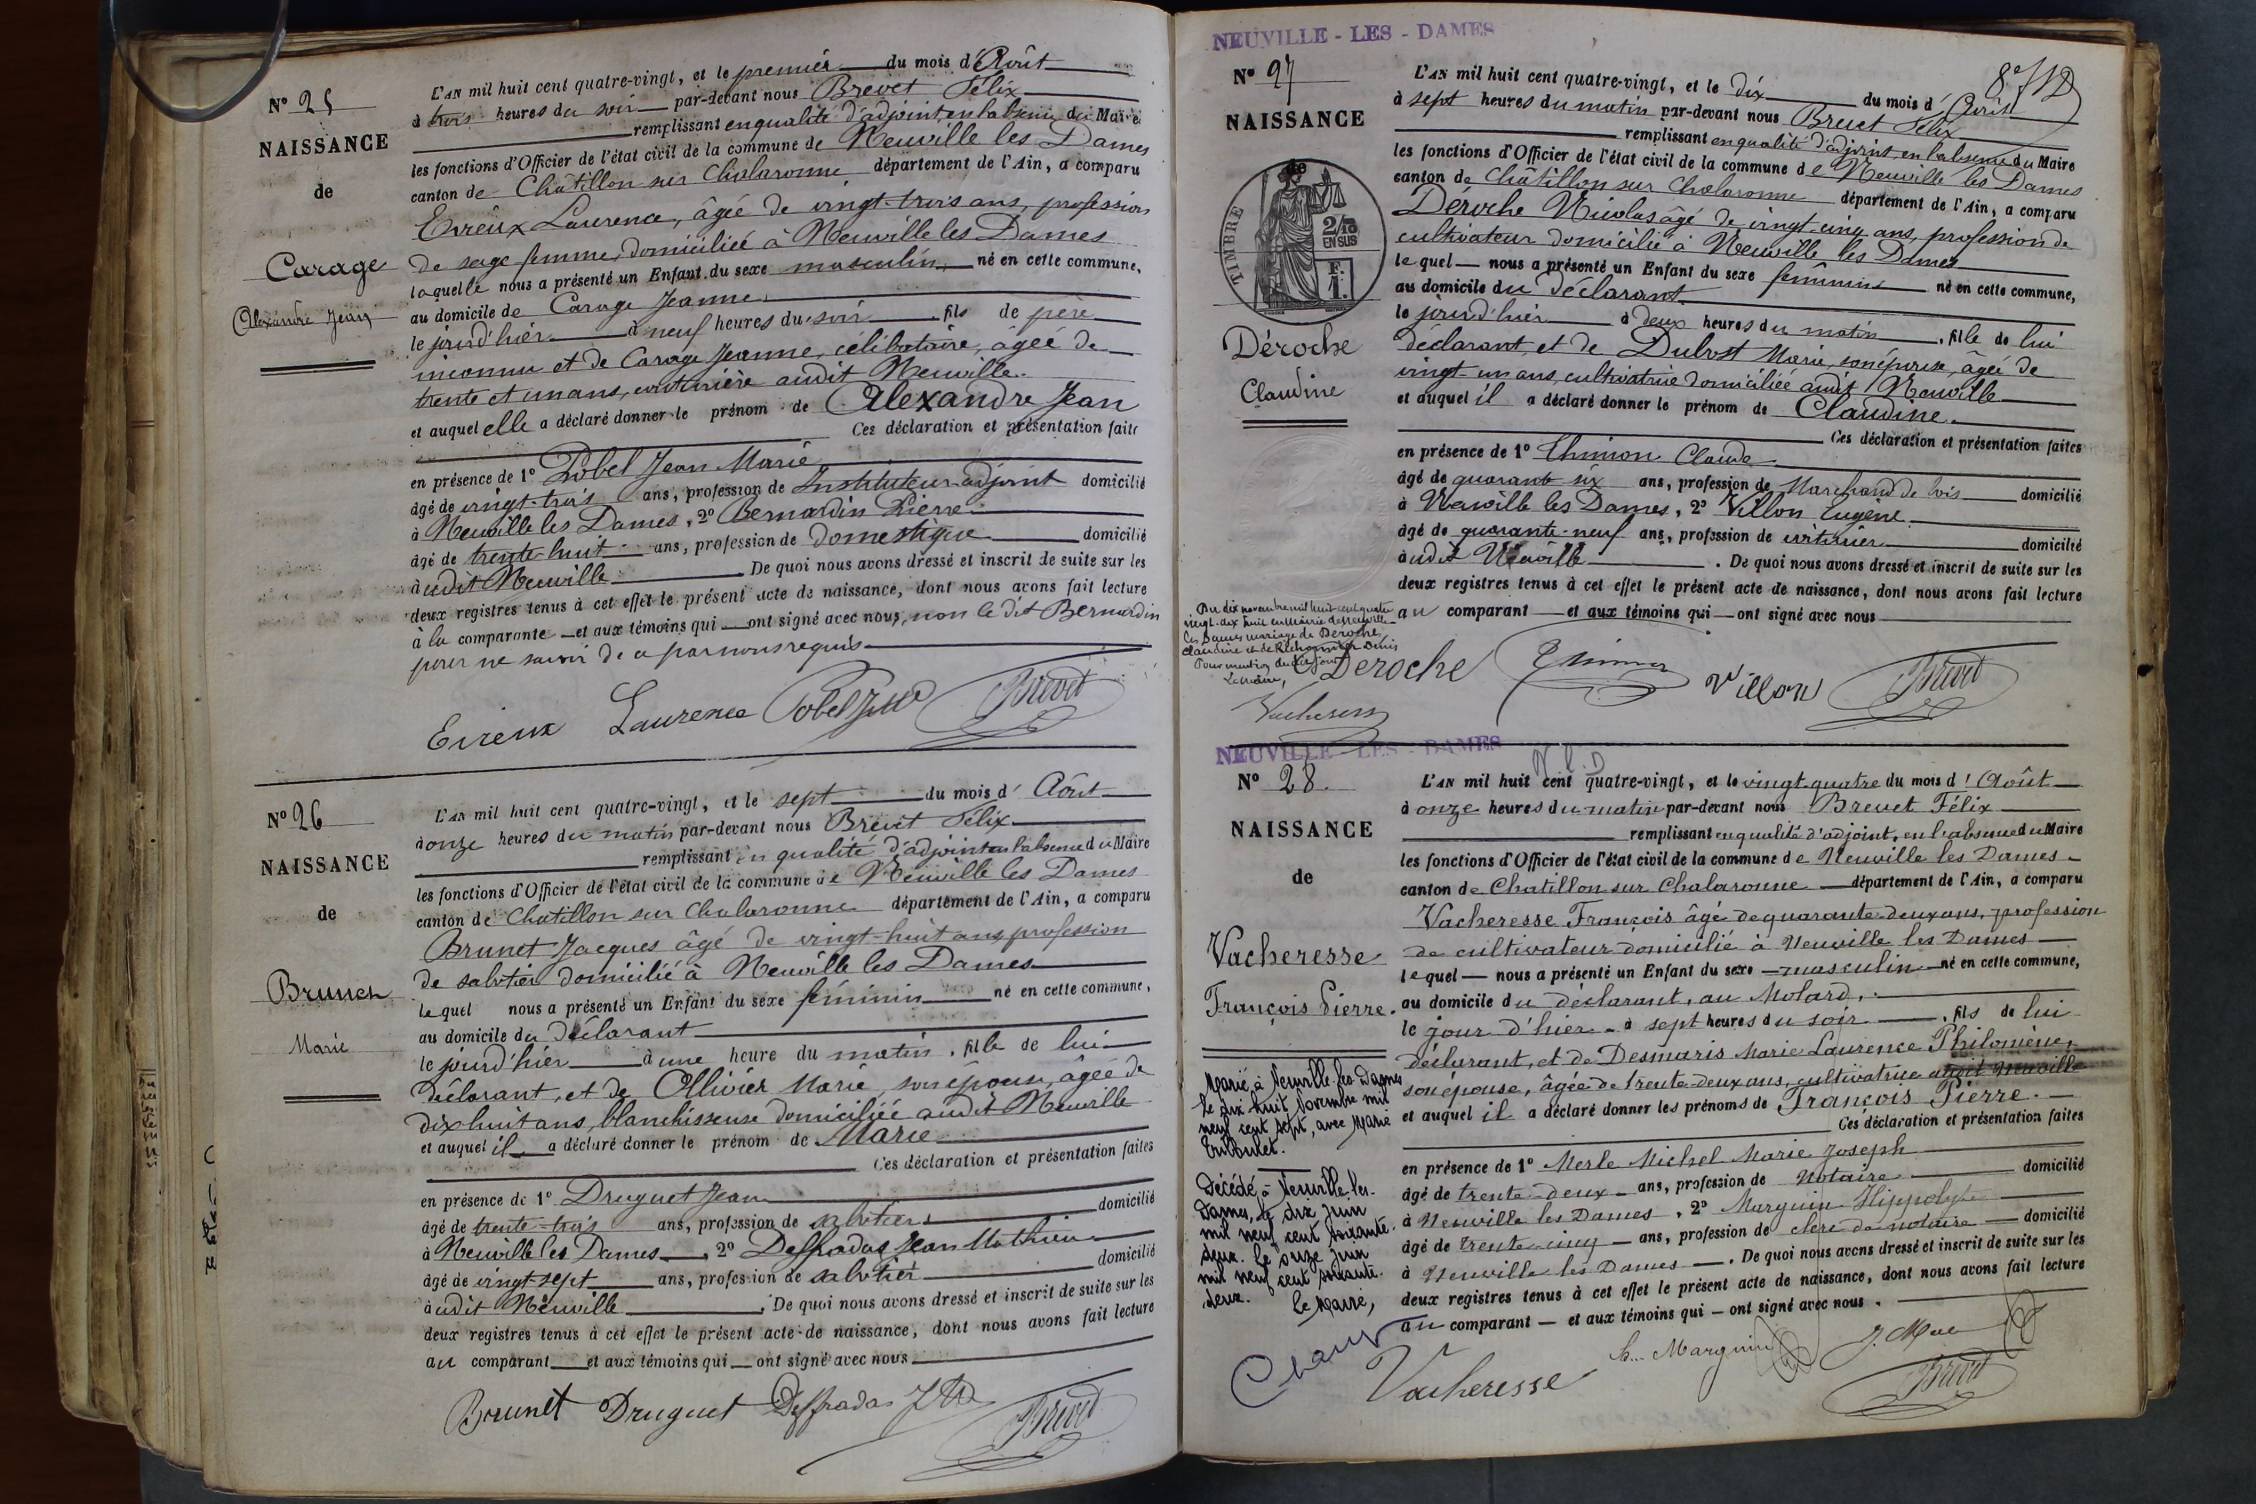 N° 25
NAISSANCE
de
Carage
Alexandre Jean
L'AN mil huit cent quatre-vingt, et le premier du mois d'Août
à trois heures du soir par-devant nous Brevet Félix
remplissant en qualité d'adjoint, en l'absence du Maire
les fonctions d'Officier de l'état civil de la commune de Neuville les Dames
canton de Châtillon sur Chalaronne département de l'Ain, a comparu
Evreux Laurence, âgée de vingt-trois ans, profession
de sage femme, domiciliée à Neuville les Dames
laquelle nous a présenté un Enfant du sexe masculin, né en cette commune,
au domicile de Carage Jeanne
le jour d'hier à neuf heures du soir. fils de père
inconnu et de Carage Jeanne, célibataire, âgée de
trente et un ans, couturière audit Neuville.
et auquel elle a déclaré donner le prénom de Alexandre Jean
Ces déclaration et présentation faites
en présence de 1° Pobel Jean Marie
âgé de vingt-trois ans, profession de Instituteur adjoint domicilié
à Neuville les Dames, 2° Bernardin Pierre
âgé de trente-huit ans, profession de domestique domicilié
à udit Neuville. De quoi nous avons dressé et inscrit de suite sur les
deux registres tenus à cet effet le présent acte de naissance, dont nous avons fait lecture
à la comparante et aux témoins qui ont signé avec nous, non le dit Bernardin
pour ne savoir de ce par nous requis
Evreux Laurence Pobel Brevet
N° 26
NAISSANCE
de
Brunet
Marie
L'AN mil huit cent quatre-vingt, et le sept du mois d'Août
à onze heures du matin par-devant nous Brevet Félix
remplissant en qualité d'adjoint en l'absence du Maire
les fonctions d'Officier de l'état civil de la commune de Neuville les Dames
canton de Chatillon sur Chalaronne département de l'Ain, a comparu
Brunet Jacques âgé de vingt-huit ans profession
de sabotier domicilié à Neuville les Dames
lequel nous a présenté un Enfant du sexe féminin né en cette commune,
au domicile du déclarant
le jour d'hier à une heure du matin. fille de lui
déclarant, et de Ollivier Marie, son épouse, âgée de
dix huit ans, blanchisseuse domiciliée audit Neuville
et auquel il a déclaré donner le prénom de Marie
Ces déclaration et présentation faites
en présence de 1° Druguet Jean
âgé de trente-trois ans, profession de sabotier domicilié
à Neuville les Dames, 2° Deffradas Jean Mathieu
âgé de vingt-sept ans, profession de sabotier domicilié
à udit Neuville. De quoi nous avons dressé et inscrit de suite sur les
deux registres tenus à cet effet le présent acte de naissance, dont nous avons fait lecture
au comparant et aux témoins qui ont signé avec nous
Brunet Druguet Deffradas Brevet
NEUVILLE - LES - DAMES
N° 27
NAISSANCE
de
TIMBRE
2/10
EN SUS
Déroche
Claudine
L'AN mil huit cent quatre-vingt, et le dix du mois d'Août
à sept heures du matin par-devant nous Brevet Félix
remplissant en qualité d'adjoint, en l'absence du Maire
les fonctions d'Officier de l'état civil de la commune de Neuville les Dames
canton de Châtillon sur Chalaronne département de l'Ain, a comparu
Déroche Nicolas âgé de vingt-cinq ans, profession de
cultivateur domicilié à Neuville les Dames
lequel nous a présenté un Enfant du sexe féminin né en cette commune,
au domicile du déclarant
le jour d'hier à deux heures du matin. fille de lui
déclarant, et de Dubost Marie, son épouse, âgée de
vingt-un ans, cultivatrice domiciliée audit Neuville
et auquel il a déclaré donner le prénom de Claudine.
Ces déclaration et présentation faites
en présence de 1° Thimon Claude
âgé de quarante six ans, profession de Marchand de bois domicilié
à Neuville les Dames, 2° Villon Eugène
âgé de quarante-neuf ans, profession de voiturier domicilié
à udit Neuville. De quoi nous avons dressé et inscrit de suite sur les
deux registres tenus à cet effet le présent acte de naissance, dont nous avons fait lecture
au comparant et aux témoins qui ont signé avec nous
Du dix novembre mil huit cent quatre
vingt-dix huit en Mairie de Neuville
les Dames mariage de Deroche
Claudine et de Denis
Pour mention du dit jour
Le Maire,
Vacheresse
Deroche Thimon Villon Brevet
NEUVILLE - LES - DAMES
N L D
N° 28.
NAISSANCE
de
Vacheresse
François Pierre.
L'AN mil huit cent quatre-vingt, et le vingt-quatre du mois d'Août
à onze heures du matin par-devant nous Brevet Félix
remplissant en qualité d'adjoint, en l'absence du Maire
les fonctions d'Officier de l'état civil de la commune de Neuville les Dames
canton de Chatillon sur Chalaronne département de l'Ain, a comparu
Vacheresse François âgé de quarante-deux ans, profession
de cultivateur domicilié à Neuville les Dames
lequel nous a présenté un Enfant du sexe masculin né en cette commune,
au domicile du déclarant, au Molard,
le jour d'hier à sept heures du soir. fils de lui
déclarant, et de Desmaris Marie Laurence Philomène,
son épouse, âgée de trente-deux ans, cultivatrice audit Neuville
et auquel il a déclaré donner les prénoms de François Pierre.
Ces déclaration et présentation faites
en présence de 1° Merle Michel Marie Joseph
âgé de trente-deux ans, profession de Notaire domicilié
à Neuville les Dames, 2° Marguin Hippolyte
âgé de trente-cinq ans, profession de clerc de notaire domicilié
à Neuville les Dames. De quoi nous avons dressé et inscrit de suite sur les
deux registres tenus à cet effet le présent acte de naissance, dont nous avons fait lecture
au comparant et aux témoins qui ont signé avec nous.
Marié à Neuville-les-Dames
le dix huit Novembre mil
neuf cent sept, avec Marie
Triboulet.
Décédé à Neuville-les-
Dames, le dix juin
mil neuf cent soixante-
deux. Le onze juin
mil neuf cent soixante-
deux.
Le Maire,
Vacheresse Marguin Brevet